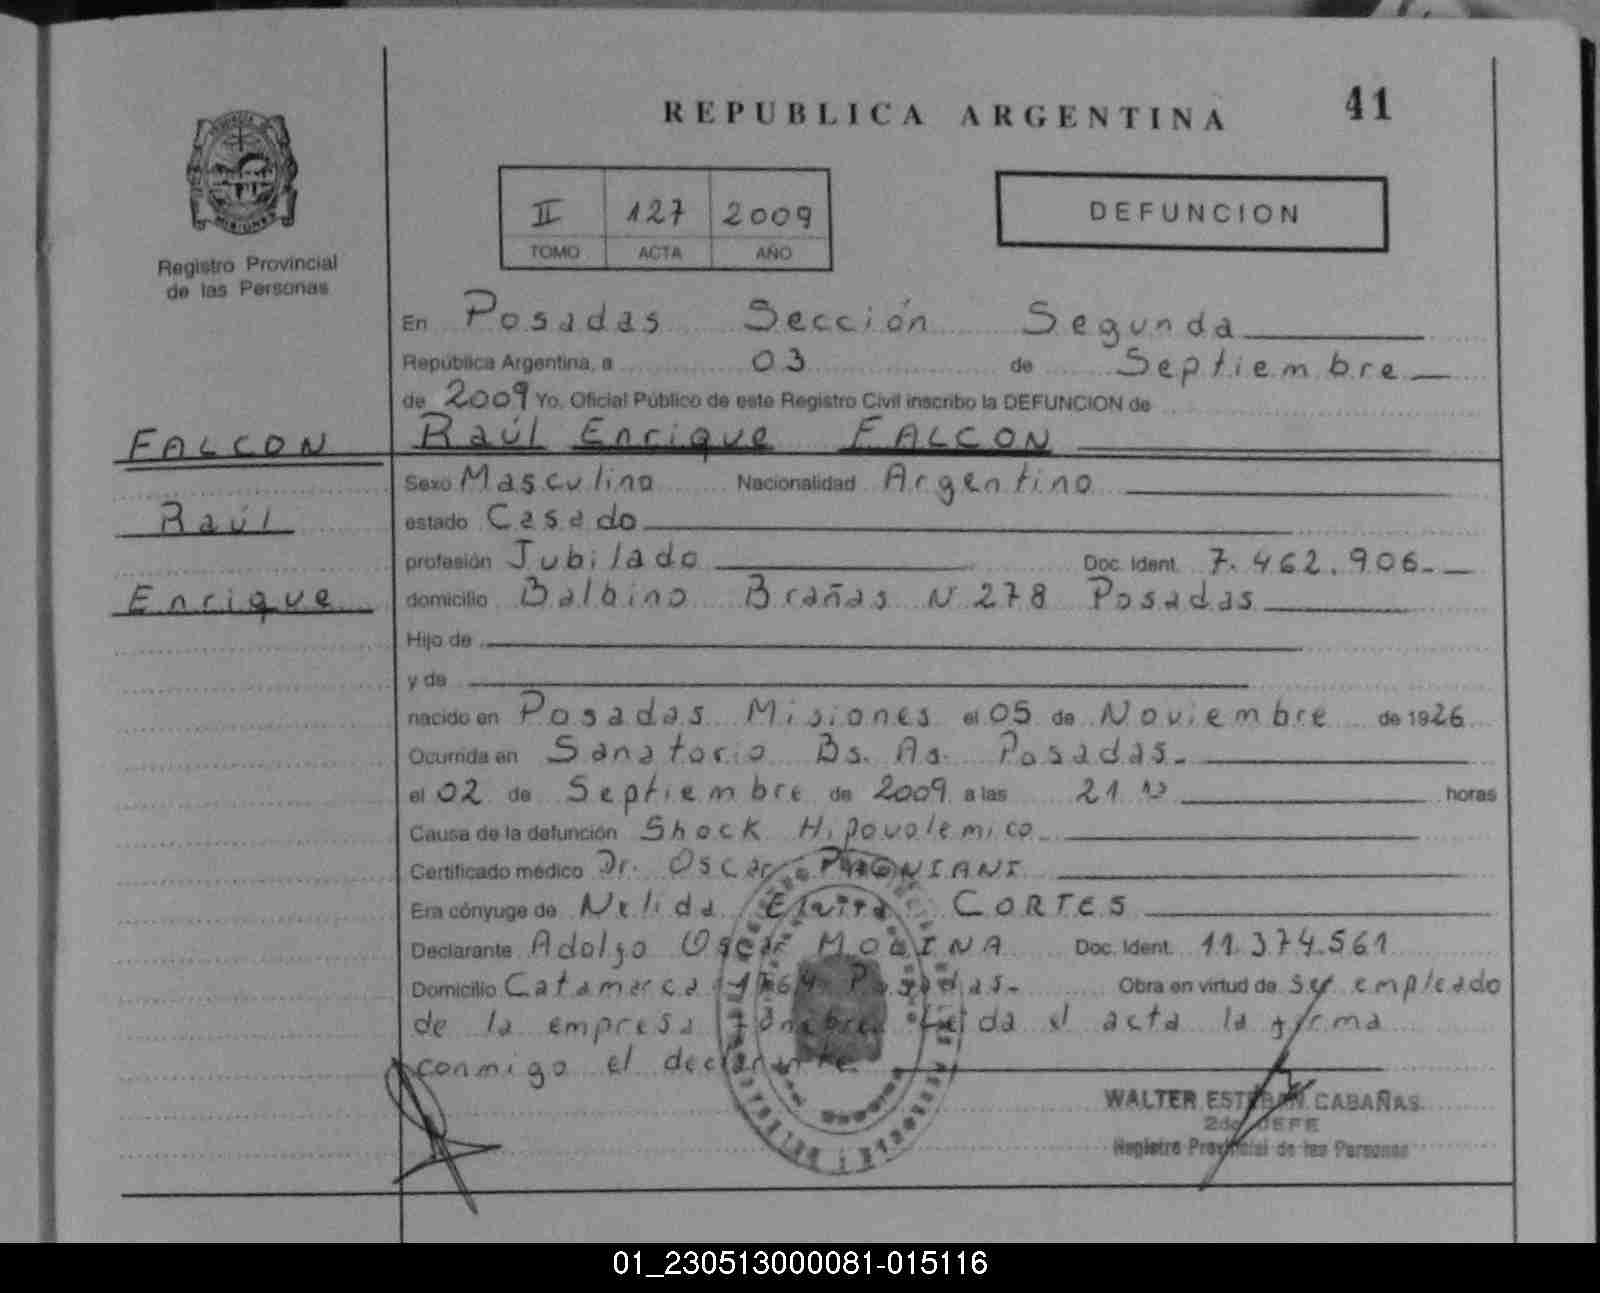 REPUBLICA ARGENTINA
41
MISIONES
Registro Provincial
de las Personas
II 127 2009
TOMO ACTA AÑO
DEFUNCION
En Posadas Sección Segunda
República Argentina, a 03 de Septiembre
de 2009 Yo, Oficial Público de este Registro Civil inscribo la DEFUNCION de
FALCON
Raúl
Enrique
Raúl Enrique FALCON
Sexo Masculino Nacionalidad Argentino
estado Casado
profesión Jubilado Doc. Ident. 7.462.906.-
domicilio Balbino Brañas N 278 Posadas
Hijo de
y de
nacido en Posadas Misiones el 05 de Noviembre de 1926
Ocurrida en Sanatorio Bs. As. Posadas.-
el 02 de Septiembre de 2009 a las 21 horas
Causa de la defunción Shock Hipovolemico
Certificado médico Dr. Oscar
Era cónyuge de Nelida Elvira CORTES
Declarante Adolfo Oscar MOLINA Doc. Ident. 11.374.561
Domicilio Catamarca Posadas.- Obra en virtud de ser empleado
de la empresa funebre leida el acta la firma
conmigo el declarante.
WALTER ESTEBAN CABAÑAS
2do JEFE
Registro Provincial de las Personas
01_230513000081-015116